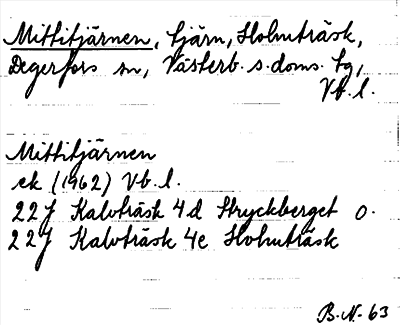 Mittitjärnen, tjärn, Holmträsk,
Degerfors sn, Västerb. s. doms. tg,
Vb. l.
Mittitjärnen
ek (1962) Vb. l.
22J Kalvträsk 4d Stryckberget o.
22J Kalvträsk 4e Holmträsk
B.N. 63